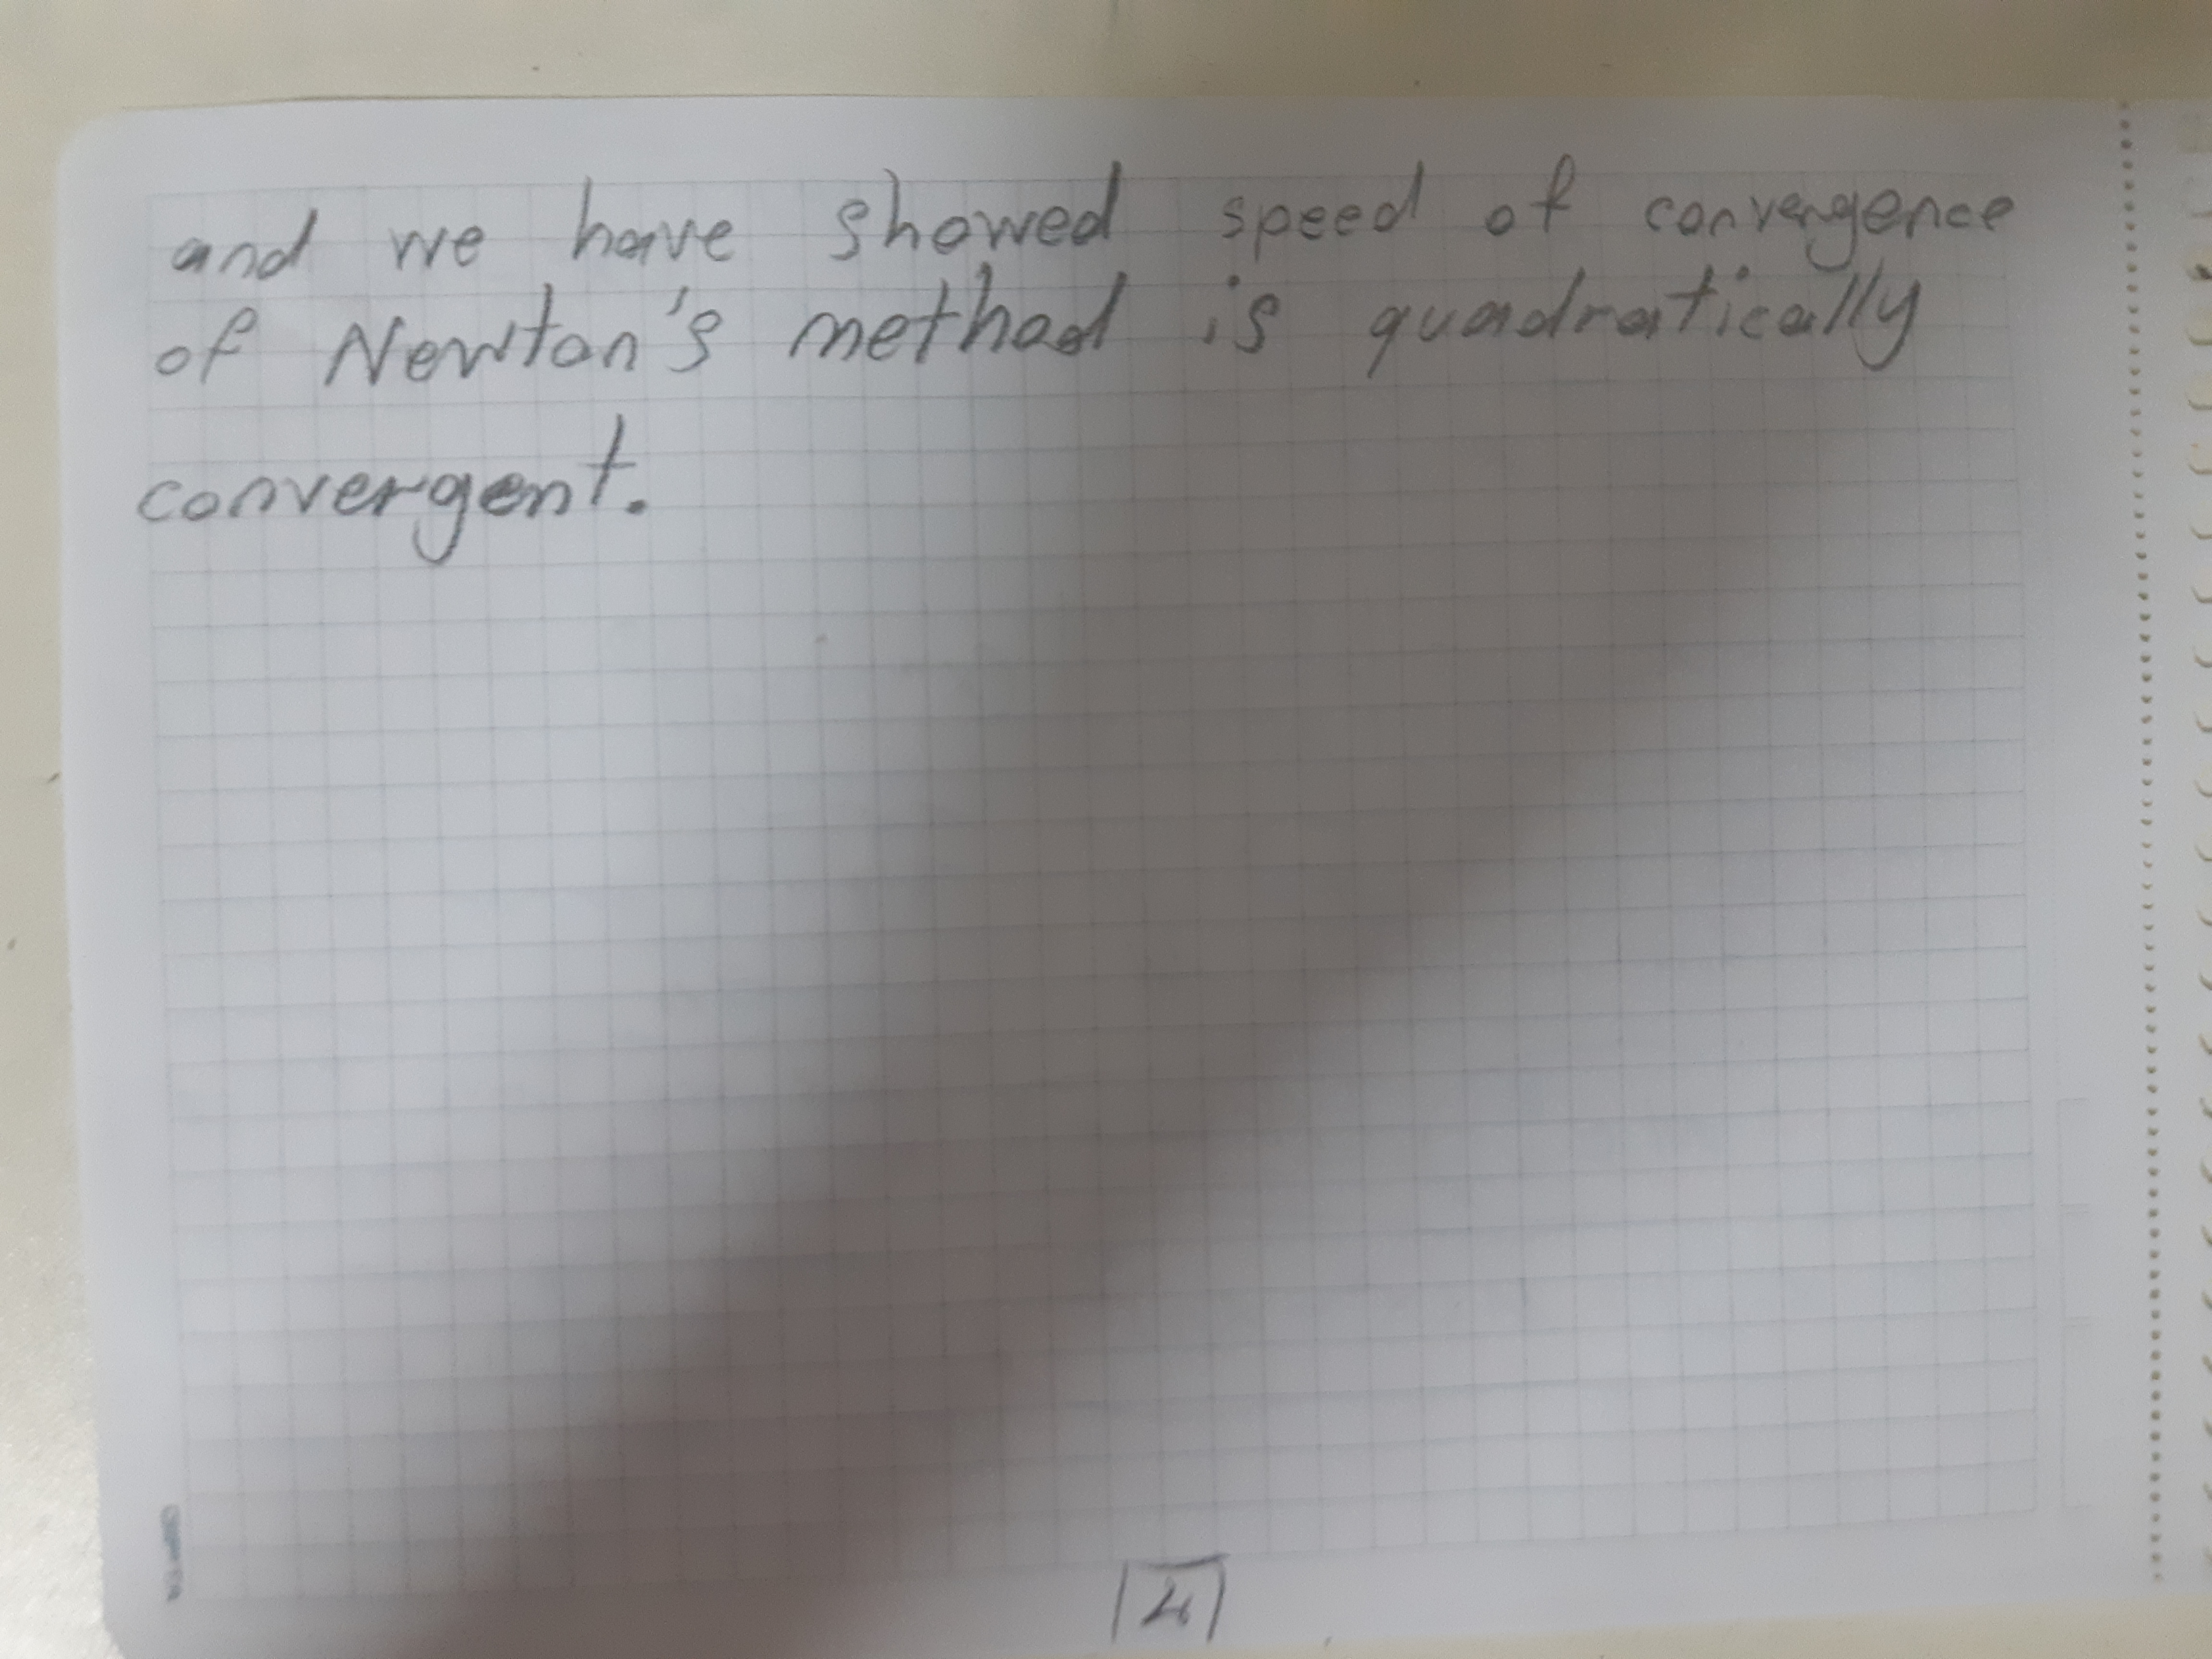 and we have showed speed of convergence
of Newton's method is quadratically
convergent.
4